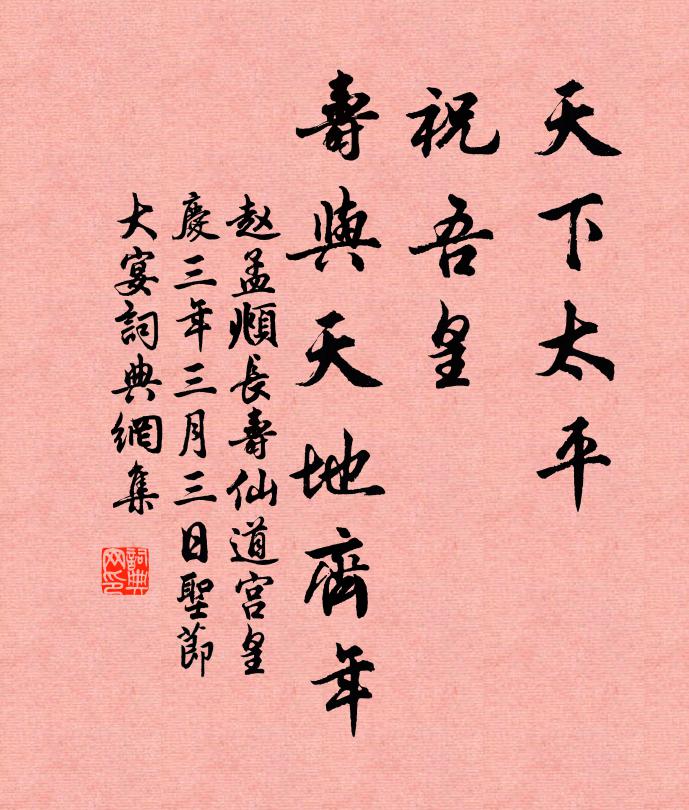 天下太平
祝吾皇
壽與天地齊年
赵孟頫長壽仙道宫皇
慶三年三月三日聖節
大宴詞典網集
詞典网印